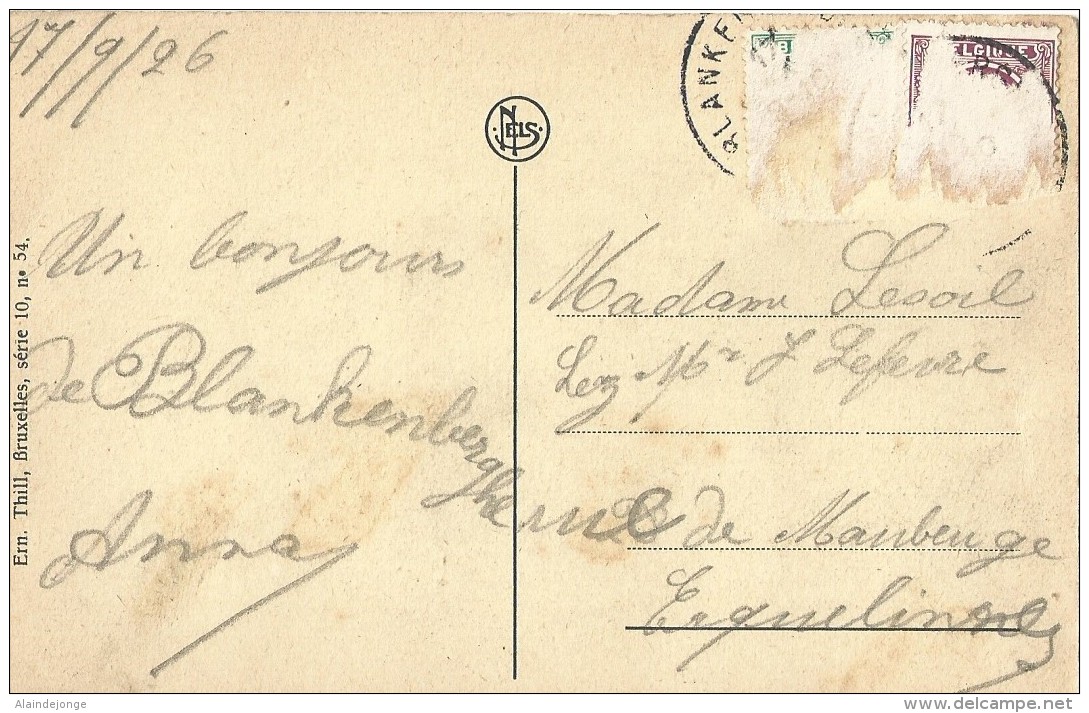 17/9/26
NELS
BLANKE
ELGIQUE
Un bonjours
de Blankenberghe
Anna
Madame Lesoil
Lez Mr J Lefevre
rue de Maubeuge
Erquelinnes
Ern. Thill, Bruxelles, série 10, no 54.
Alaindejonge
delcampe.net